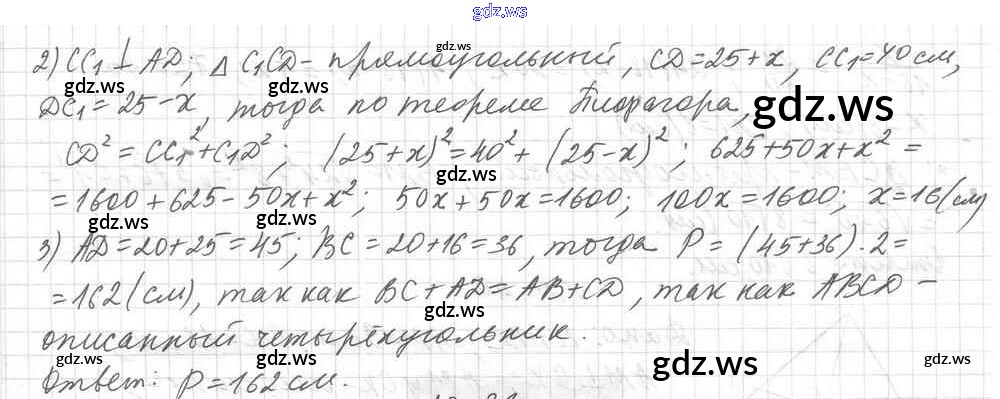 gdz.ws
2) CC₁ ⊥ AD; △ C₁CD – прямоугольный, CD = 25 + x, CC₁ = 40 см,
DC₁ = 25 – x, тогда по теореме Пифагора,
gdz.ws
gdz.ws
gdz.ws
CD² = CC₁² + C₁D²; (25 + x)² = 40² + (25 – x)²; 625 + 50x + x² =
gdz.ws
= 1600 + 625 – 50x + x²; 50x + 50x = 1600; 100x = 1600; x = 16 (см)
gdz.ws
gdz.ws
gdz.ws
3) AD = 20 + 25 = 45; BC = 20 + 16 = 36, тогда P = (45 + 36) · 2 =
gdz.ws
gdz.ws
= 162 (см), так как BC + AD = AB + CD, так как ABCD –
gdz.ws
gdz.ws
описанный четырёхугольник.
gdz.ws
gdz.ws
gdz.ws
gdz.ws
Ответ: P = 162 см.